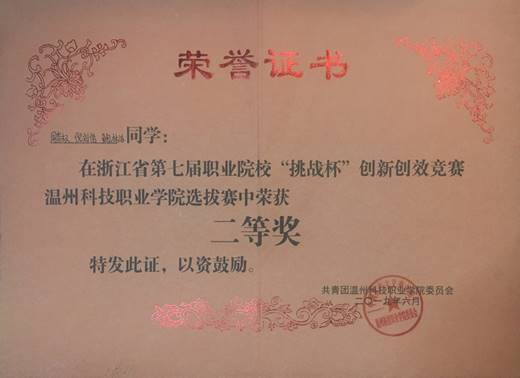 荣誉证书
同学:
在浙江省第七届职业院校“挑战杯”创新创效竞赛
温州科技职业学院选拔赛中荣获
二等奖
特发此证，以资鼓励。
共青团温州科技职业学院委员会
二〇一九年六月